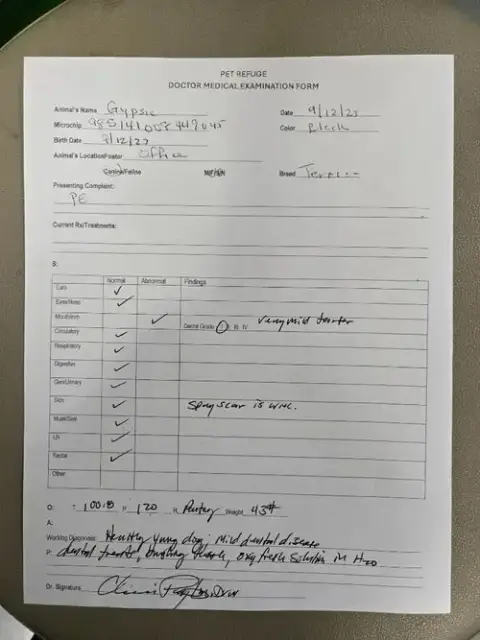 PET REFUGE
DOCTOR MEDICAL EXAMINATION FORM
Animal's Name Gypsie Date 9/12/23
Microchip 985141003449045 Color Black
Birth Date
Animal's Location/Foster Office
Canine/Feline M/F/S/N Breed Terrier
Presenting Complaint:
PE
Current Rx/Treatments:
S:
Normal Abnormal Findings
Ears ✓
Eyes/Nose ✓
Mouth ✓ Dental Grade I II III IV very mild tartar
Circulatory ✓
Respiratory ✓
Digestive ✓
Gen/Urinary ✓
Skin ✓ Spay scar is WNL.
Musk/Skel ✓
LN ✓
Rectal ✓
Other
O: T 100.8 P 120 R Panting Weight 43#
A:
Working Diagnosis: Healthy young dog; mild dental disease
P: dental treats, oxyfresh solution in H2O
Dr. Signature